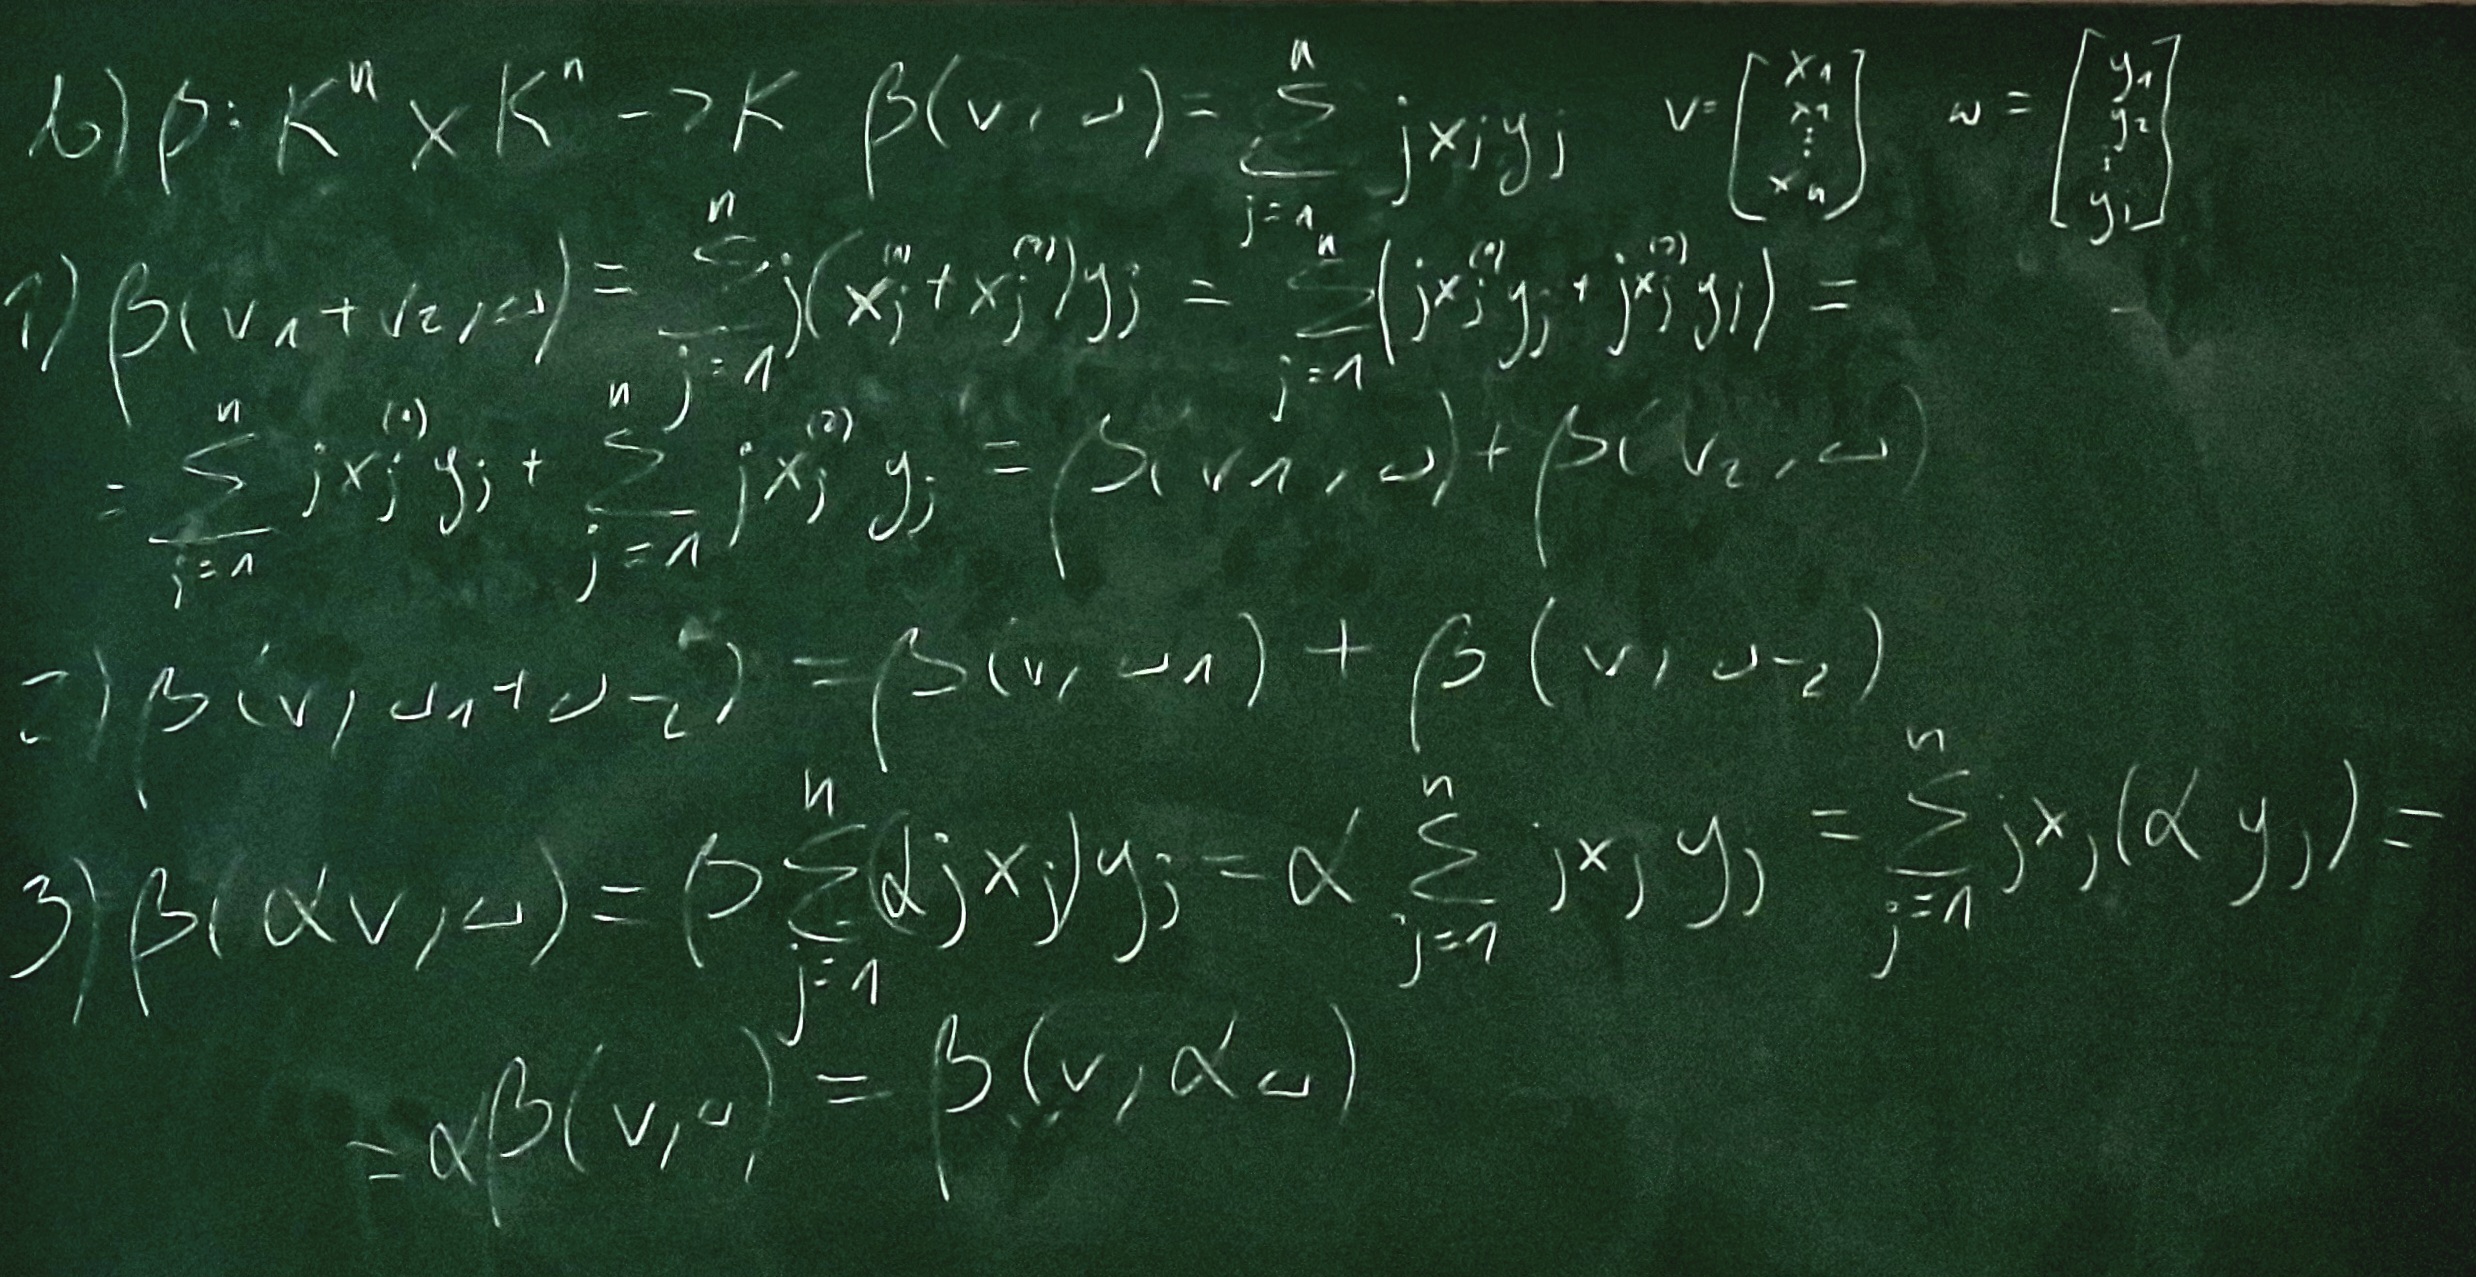 b) β: Kⁿ × Kⁿ -> K β(v, ω) = ∑_{j=1}^{n} j x_j y_j v = [x_1 x_2 ⋮ x_n] ω = [y_1 y_2 ⋮ y_j]
1) β(v_1 + v_2, ω) = ∑_{j=1}^{n} j(x_j^{(1)} + x_j^{(2)}) y_j = ∑_{j=1}^{n} (j x_j^{(1)} y_j + j x_j^{(2)} y_j) =
= ∑_{j=1}^{n} j x_j^{(1)} y_j + ∑_{j=1}^{n} j x_j^{(2)} y_j = β(v_1, ω) + β(v_2, ω)
2) β(v, ω_1 + ω_2) = β(v, ω_1) + β(v, ω_2)
3) β(αv, ω) = β ∑_{j=1}^{n} (α j x_j) y_j = α ∑_{j=1}^{n} j x_j y_j = ∑_{j=1}^{n} j x_j (α y_j) =
= αβ(v, ω) = β(v, αω)